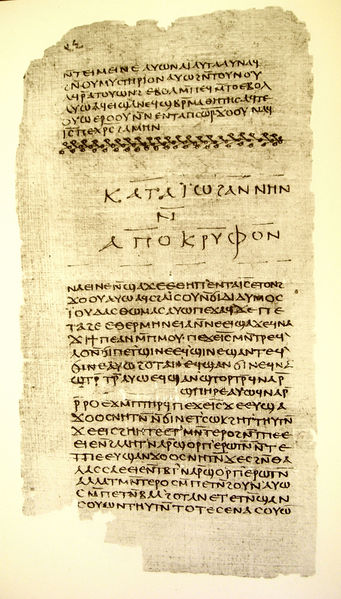 ⲛⲧⲉⲓⲙⲉⲓⲛⲉ ⲁⲩⲱ ⲛⲁⲓ ⲁⲩⲧⲁⲁⲩ ⲛⲁϥ
ϩⲛ ⲟⲩⲙⲩⲥⲧⲏⲣⲓⲟⲛ ⲁⲩⲱ ⲛⲧⲟⲩⲛⲟⲩ
ⲁϥⲣⲁⲧⲟⲩⲱⲛϩ ⲉⲃⲟⲗ ⲙⲡⲉϥⲙⲧⲟ ⲉⲃⲟⲗ
ⲁⲩⲱ ⲁϥⲉⲓ ϣⲁ ⲛⲉϥϣⲃⲣⲙⲁⲑⲏⲧⲏⲥ ⲁϥⲧⲉ
ⲟⲩⲱ ⲉⲣⲟⲟⲩ ⲛⲛⲉⲛⲧⲁⲡⲥⲱ︦ⲣ︦ ϫⲟⲟⲩ ⲛⲁϥ
ⲓ︦ⲥ︦ ⲡⲉⲭ︦ⲥ︦ ϩⲁⲙⲏⲛ
ⲕⲁⲧⲁ ⲓ̈ⲱϩⲁⲛⲛⲏⲛ
ⲛ̄
ⲁⲡⲟⲕⲣⲩⲫⲟⲛ
ⲛⲁⲉⲓ ⲛⲉ ⲛ̄ϣⲁϫⲉ ⲉⲑⲏⲡ ⲉⲛⲧⲁⲓ︦ⲥ︦ ⲉⲧⲟⲛϩ
ϫⲟⲟⲩ ⲁⲩⲱ ⲁϥⲥϩⲁⲓ̈ⲥⲟⲩ ⲛ̄ϭⲓ ⲇⲓⲇⲩⲙⲟⲥ
ⲓ̈ⲟⲩⲇⲁⲥ ⲑⲱⲙⲁⲥ ⲁⲩⲱ ⲡⲉϫⲁϥ ϫⲉ ⲡⲉ
ⲧⲁϩⲉ ⲉⲑⲉⲣⲙⲏⲛⲉⲓⲁ ⲛ̄ⲛⲉⲉⲓϣⲁϫⲉ ϥⲛⲁ
ϫⲓ ϯⲡⲉ ⲁⲛ ⲙ̄ⲡⲙⲟⲩ ⲡⲉϫⲉ ⲓ︦ⲥ︦ ⲙⲛ̄ⲧⲣⲉϥ
ⲗⲟ ⲛ̄ϭⲓ ⲡⲉⲧϣⲓⲛⲉ ⲉϥϣⲓⲛⲉ ϣⲁⲛⲧⲉϥ
ϭⲓⲛⲉ ⲁⲩⲱ ϩⲟⲧⲁⲛ ⲉϥϣⲁⲛϭⲓⲛⲉ ϥⲛⲁ
ϣⲧⲣ̄ⲧⲣ̄ ⲁⲩⲱ ⲉϥϣⲁⲛϣⲧⲟⲣⲧⲣ̄ ϥⲛⲁⲣ̄
ϣⲡⲏⲣⲉ ⲁⲩⲱ ϥⲛⲁⲣ̄
ⲣ̄ⲣⲟ ⲉϫⲙ̄ ⲡⲧⲏⲣϥ ⲡⲉϫⲉ ⲓ︦ⲥ︦ ϫⲉ ⲉⲩϣⲁ
ϫⲟⲟⲥ ⲛⲏⲧⲛ̄ ⲛ̄ϭⲓ ⲛⲉⲧⲥⲱⲕ ϩⲏⲧ ⲧⲏⲩⲧⲛ̄
ϫⲉ ⲉⲓⲥϩⲏⲏⲧⲉ ⲉⲧⲙⲛ̄ⲧⲉⲣⲟ ϩⲛ̄ ⲧⲡⲉ ⲉ
ⲉⲓⲉ ⲛ̄ϩⲁⲗⲏⲧ ⲛⲁⲣ̄ ϣⲟⲣⲡ ⲉⲣⲱⲧⲛ̄ ⲛ̄ⲧⲉ
ⲧⲡⲉ ⲉⲩϣⲁⲛϫⲟⲟⲥ ⲛⲏⲧⲛ̄ ϫⲉ ⲥϩⲛ̄ ⲑⲁ
ⲗⲁⲥⲥⲁ ⲉⲉⲓⲉ ⲛ̄ⲧⲃ̄ⲧ ⲛⲁⲣ̄ ϣⲟⲣⲡ ⲉⲣⲱⲧⲛ̄
ⲁⲗⲗⲁ ⲧⲙⲛ̄ⲧⲉⲣⲟ ⲥⲙ̄ⲡⲉⲧⲛ̄ϩⲟⲩⲛ ⲁⲩⲱ
ⲥⲙ̄ⲡⲉⲧⲛ̄ⲃⲁⲗ ϩⲟⲧⲁⲛ ⲉⲧⲉⲧⲛ̄ϣⲁⲛ
ⲥⲟⲩⲱⲛ ⲧⲏⲩⲧⲛ̄ ⲧⲟⲧⲉ ⲥⲉⲛⲁⲥⲟⲩⲱ